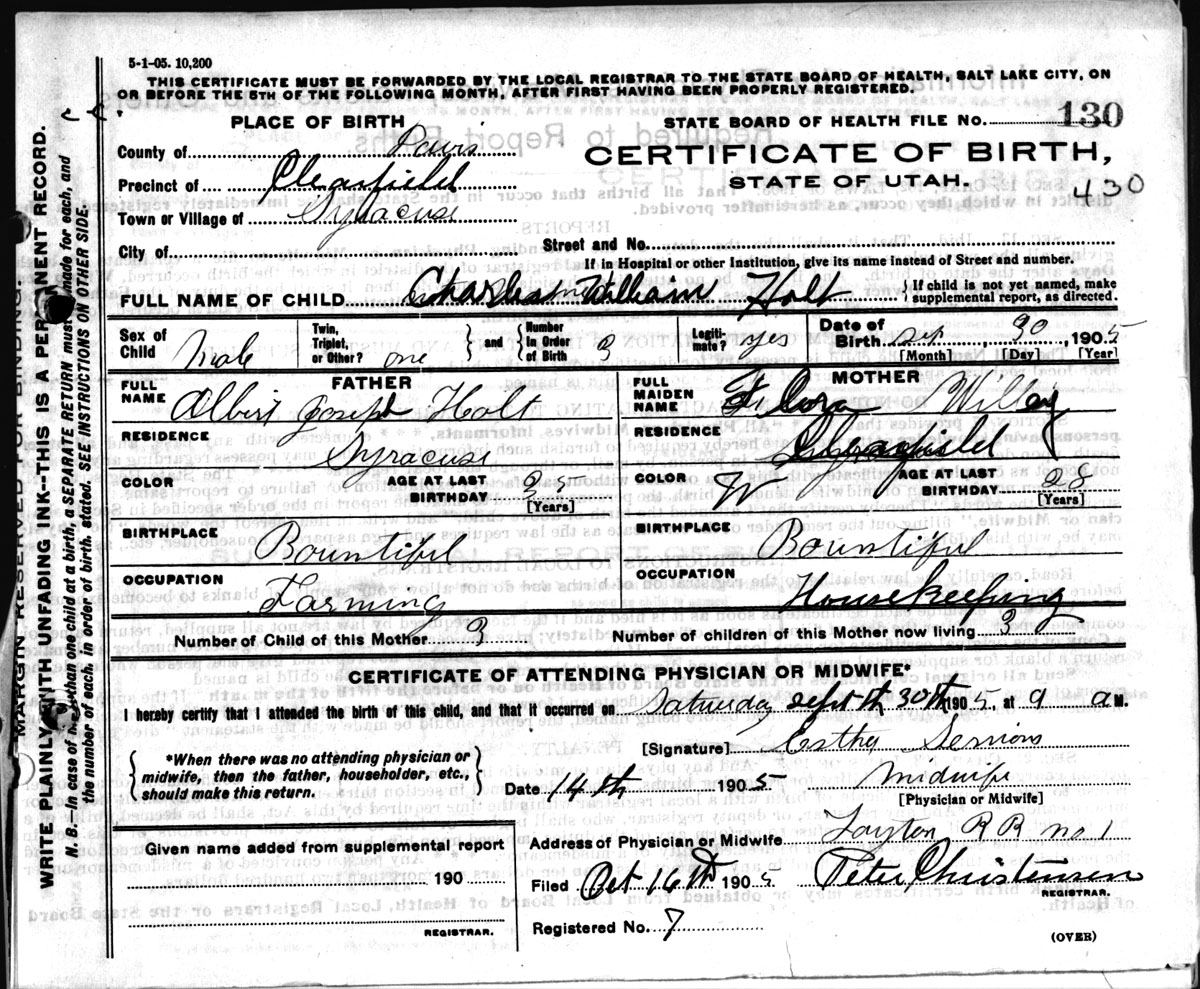 5-1-05. 10,200
THIS CERTIFICATE MUST BE FORWARDED BY THE LOCAL REGISTRAR TO THE STATE BOARD OF HEALTH, SALT LAKE CITY, ON
OR BEFORE THE 5TH OF THE FOLLOWING MONTH, AFTER FIRST HAVING BEEN PROPERLY REGISTERED.
PLACE OF BIRTH
STATE BOARD OF HEALTH FILE No. 130
County of Davis
CERTIFICATE OF BIRTH,
Precinct of Clearfield
STATE OF UTAH.
430
Town or Village of Syracuse
City of
Street and No.
If in Hospital or other Institution, give its name instead of Street and number.
FULL NAME OF CHILD Charles William Holt { If child is not yet named, make supplemental report, as directed.
Sex of Child Male
Twin, Triplet, or Other? one } and { Number In Order of Birth 3
Legiti- mate? yes
Date of Birth Sep 30 1905
[Month] [Day] [Year]
FATHER
FULL NAME Albert Joseph Holt
RESIDENCE Syracuse
COLOR AGE AT LAST BIRTHDAY 35 [Years]
BIRTHPLACE Bountiful
OCCUPATION Farming
MOTHER
FULL MAIDEN NAME Flora Willey
RESIDENCE
COLOR W AGE AT LAST BIRTHDAY 28 [Years]
BIRTHPLACE Bountiful
OCCUPATION Housekeeping
Number of Child of this Mother 3
Number of children of this Mother now living 3
CERTIFICATE OF ATTENDING PHYSICIAN OR MIDWIFE*
I hereby certify that I attended the birth of this child, and that it occurred on Saturday Sept th 30th 1905, at 9 a M.
{ *When there was no attending physician or midwife, then the father, householder, etc., should make this return. }
[Signature] Esther
Date 14th 1905 midwife
[Physician or Midwife]
Address of Physician or Midwife Layton RR no 1
Given name added from supplemental report
190
REGISTRAR.
Filed Oct 16th 1905 Peter Christensen
REGISTRAR.
Registered No. 7
(OVER)
MARGIN RESERVED FOR BINDING.
WRITE PLAINLY WITH UNFADING INK--THIS IS A PERMANENT RECORD.
N. B.--In case of more than one child at a birth, a SEPARATE RETURN must be made for each, and
the number of each, in order of birth, stated. SEE INSTRUCTIONS ON OTHER SIDE.